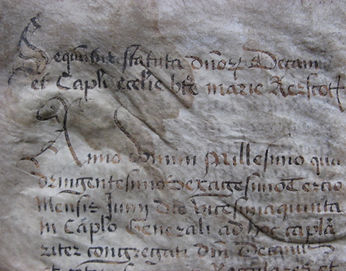 Sequūtur statuta dn̄oꝝ Decani
et Capl̄i eccl̄ie btē marie
Anno domini Millesimo qua
dringentesimo sexagesimo Tercio
Mensis Junij die vicesimaquinta
in Capl̄o Generali ad hoc capl̄a
riter congregati dn̄i Decanus
et